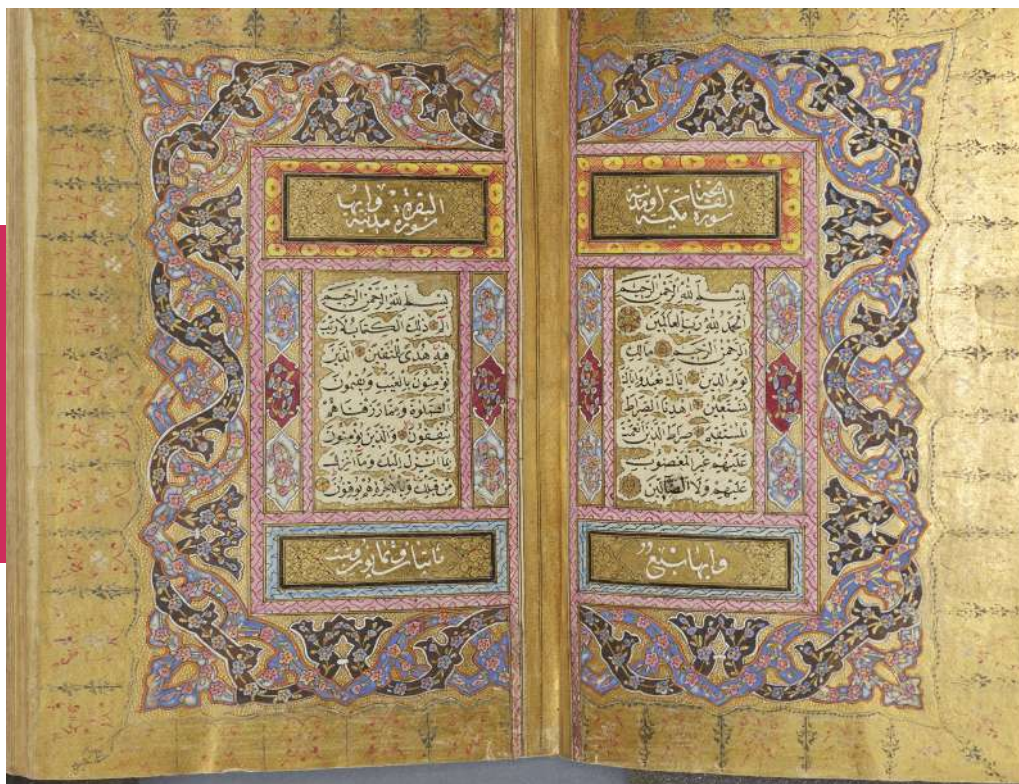 سورة الفاتحة مكية او مدنية
بِسْمِ اللّٰهِ الرَّحْمٰنِ الرَّحِيمِ
اَلْحَمْدُ لِلّٰهِ رَبِّ الْعَالَمِينَ
اَلرَّحْمٰنِ الرَّحِيمِ مَالِكِ
يَوْمِ الدِّينِ اِيَّاكَ نَعْبُدُ وَاِيَّاكَ
نَسْتَعِينُ اِهْدِنَا الصِّرَاطَ
الْمُسْتَقِيمَ صِرَاطَ الَّذِينَ اَنْعَمْتَ
عَلَيْهِمْ غَيْرِ الْمَغْضُوبِ
عَلَيْهِمْ وَلَا الضَّالِّينَ
وايها سبع
سورة البقرة مدنية وايها
بِسْمِ اللّٰهِ الرَّحْمٰنِ الرَّحِيمِ
الم ذٰلِكَ الْكِتَابُ لَا رَيْبَ
فِيهِ هُدًى لِلْمُتَّقِينَ اَلَّذِينَ
يُؤْمِنُونَ بِالْغَيْبِ وَيُقِيمُونَ
الصَّلٰوةَ وَمِمَّا رَزَقْنَاهُمْ
يُنْفِقُونَ وَالَّذِينَ يُؤْمِنُونَ
بِمَا اُنْزِلَ اِلَيْكَ وَمَا اُنْزِلَ
مِنْ قَبْلِكَ وَبِالْاٰخِرَةِ هُمْ يُوقِنُونَ
مائتان وثمانون وست